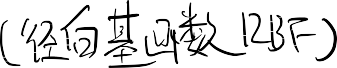 (径向基函数RBF)